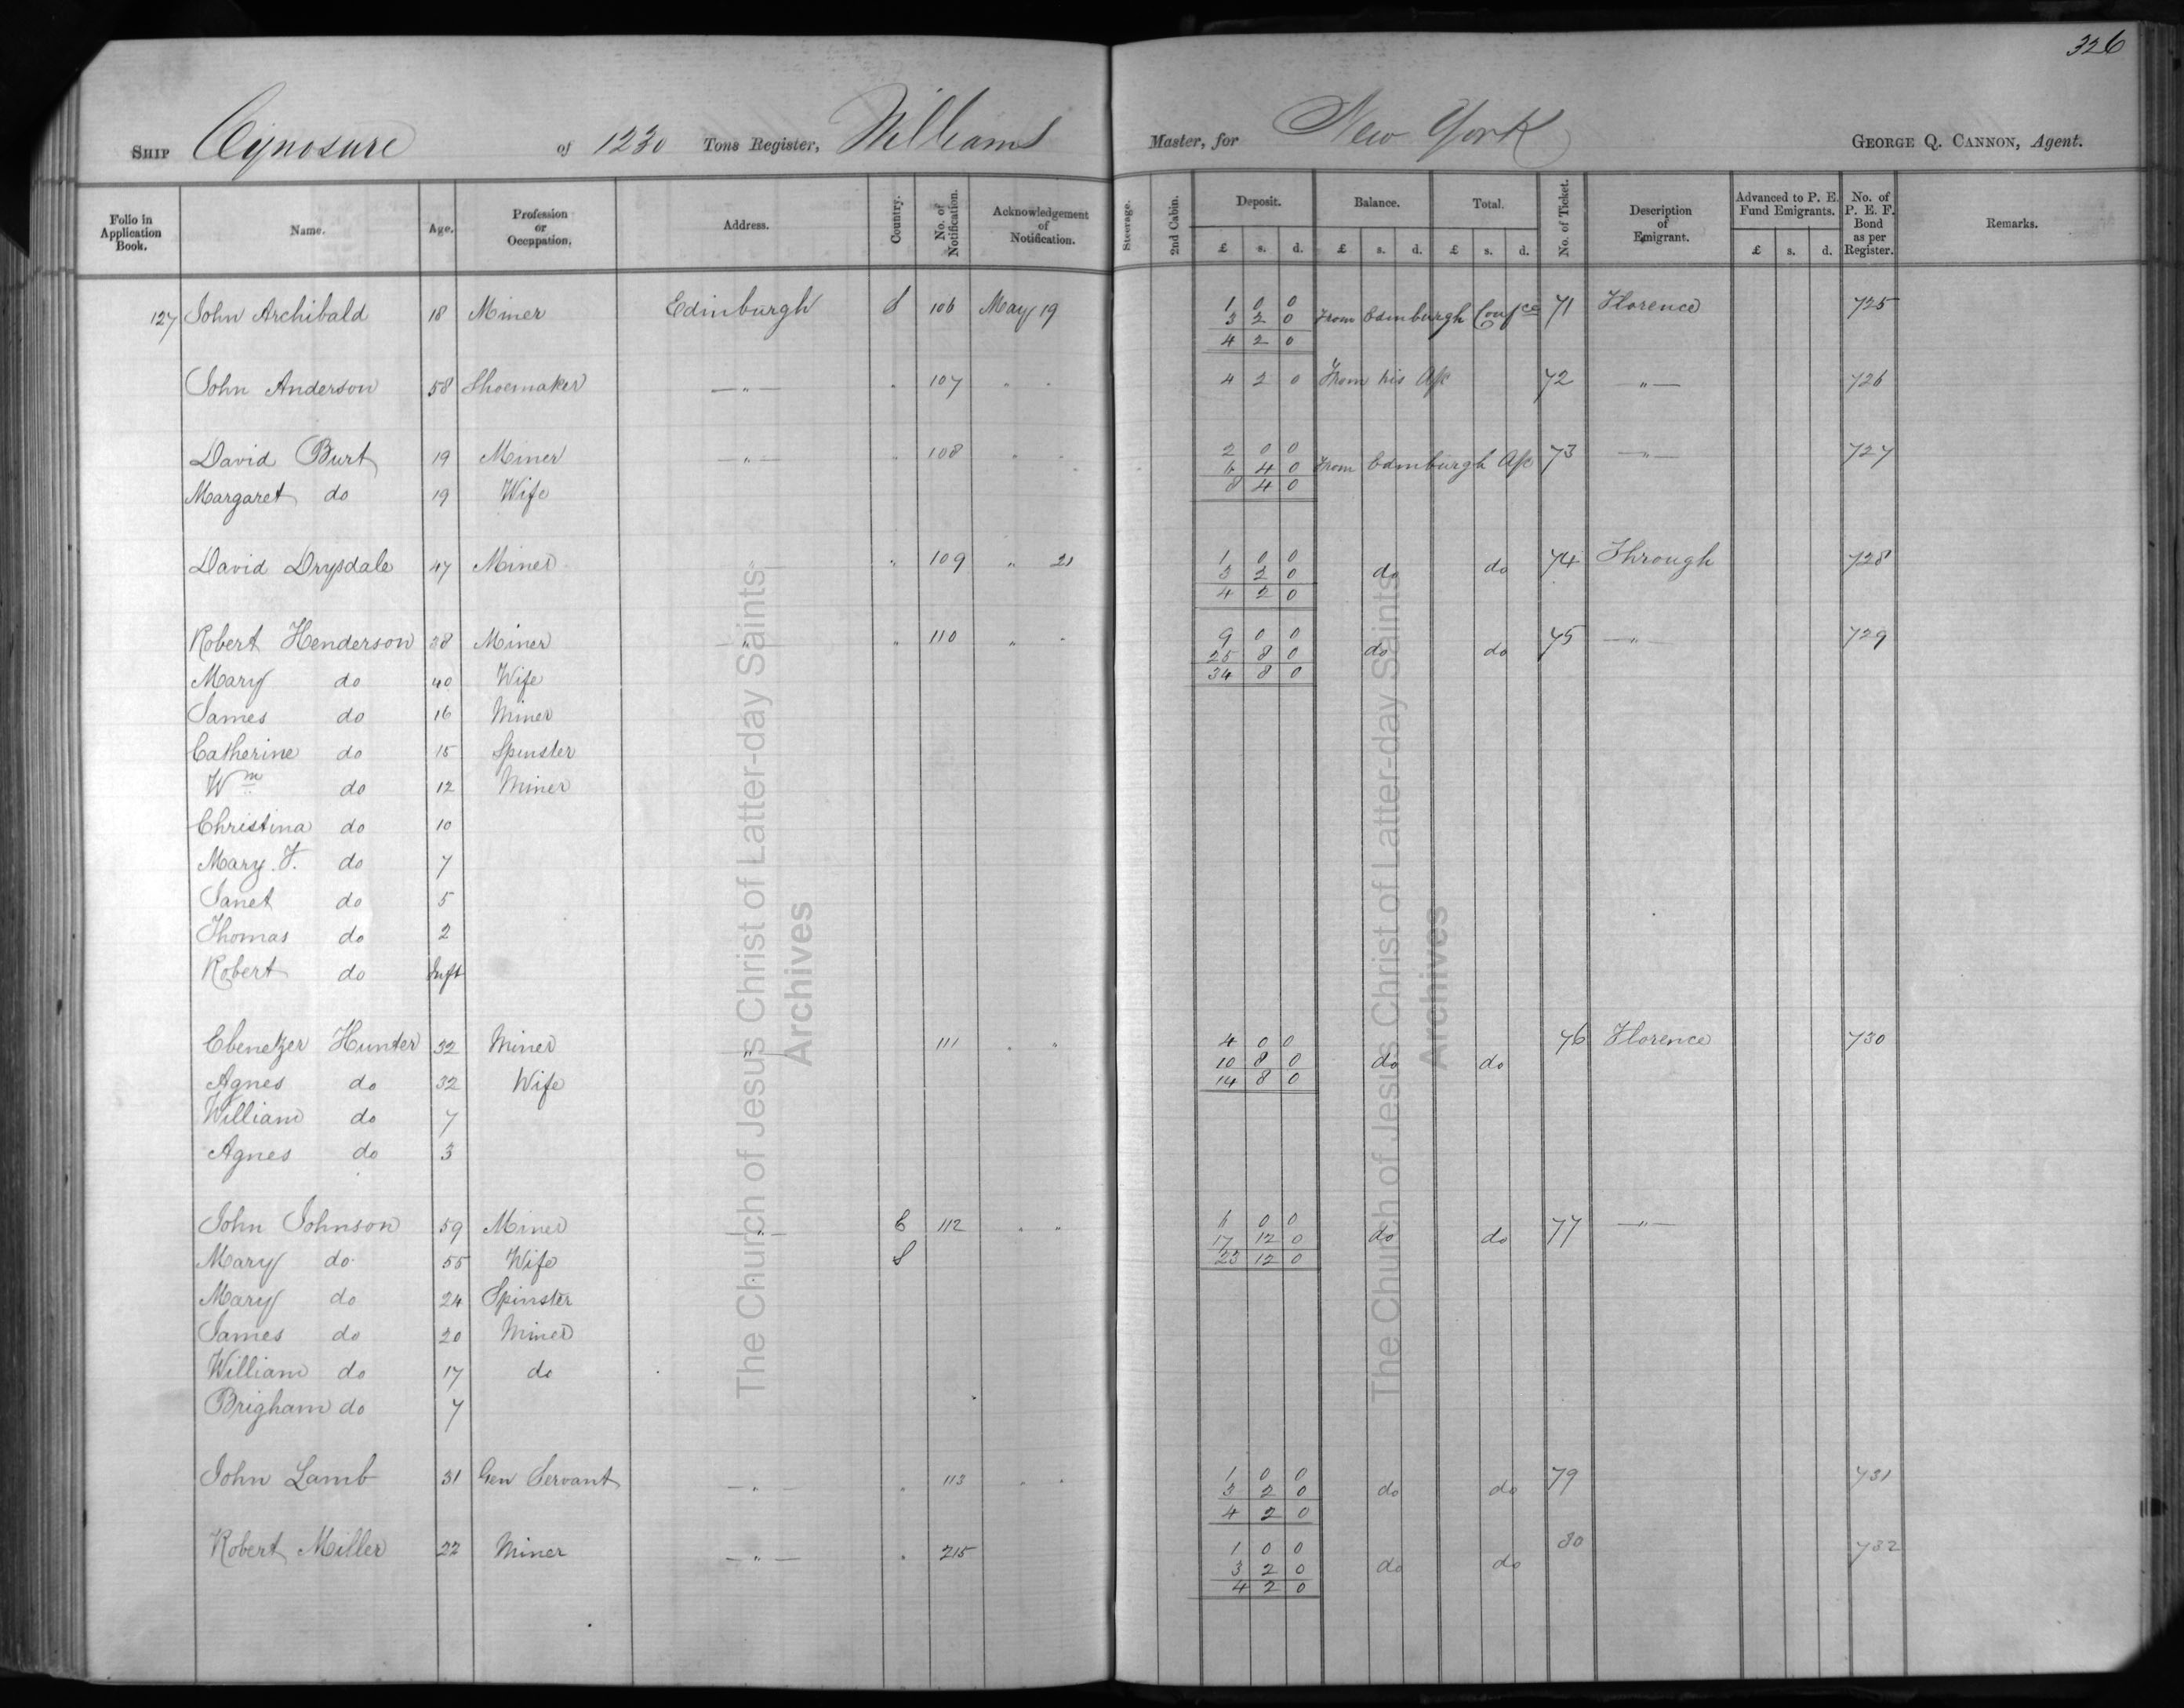 326
SHIP Cynosure of 1230 Tons Register, Williams Master, for New York GEORGE Q. CANNON, Agent.
Folio in Application Book. Name. Age. Profession or Occupation. Address. Country. No. of Notification. Acknowledgement of Notification. Steerage. 2nd Cabin. Deposit. £ s. d. Balance. £ s. d. Total. £ s. d. No. of Ticket. Description of Emigrant. Advanced to P. E. Fund Emigrants. £ s. d. No. of P. E. F. Bond as per Register. Remarks.
127 John Archibald 18 Miner Edinburgh S 106 May 19 1 0 0 71 Florence 725
3 2 0 From Edinburgh Confce
4 2 0
John Anderson 58 Shoemaker —"— " 107 " " 4 2 0 From his A/c 72 —"— 726
David Burt 19 Miner —"— " 108 " " 2 0 0 73 —"— 727
6 4 0 From Edinburgh A/c
Margaret do 19 Wife 8 4 0
David Drysdale 47 Miner —"— " 109 " 21 1 0 0 74 Through 728
3 2 0 do do
4 2 0
Robert Henderson 38 Miner —"— " 110 " " 9 0 0 75 —"— 729
25 8 0 do do
Mary do 40 Wife 34 8 0
James do 16 Miner
Catherine do 15 Spinster
Wm do 12 Miner
Christina do 10
Mary F. do 7
Janet do 5
Thomas do 2
Robert do Inft
Ebenezer Hunter 32 Miner —"— 111 " " 4 0 0 76 Florence 730
10 8 0 do do
Agnes do 32 Wife 14 8 0
William do 7
Agnes do 3
John Johnson 59 Miner —"— E 112 " " 6 0 0 77 —"—
17 12 0 do do
Mary do 55 Wife S 23 12 0
Mary do 24 Spinster
James do 20 Miner
William do 17 do
Brigham do 7
John Lamb 31 Gen Servant —"— " 113 " " 1 0 0 79 731
3 2 0 do do
4 2 0
Robert Miller 22 Miner —"— " 215 1 0 0 80 732
3 2 0 do do
4 2 0
The Church of Jesus Christ of Latter-day Saints
Archives
The Church of Jesus Christ of Latter-day Saints
Archives